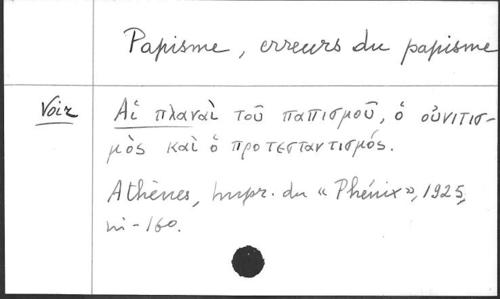 Papisme, erreurs du papisme
Voir
Αἱ πλαναὶ τοῦ παπισμοῦ, ὁ οὐνιτισ-
μὸς καὶ ὁ προτεσταντισμός.
Athènes, Impr. du « Phénix », 1925,
in-160.